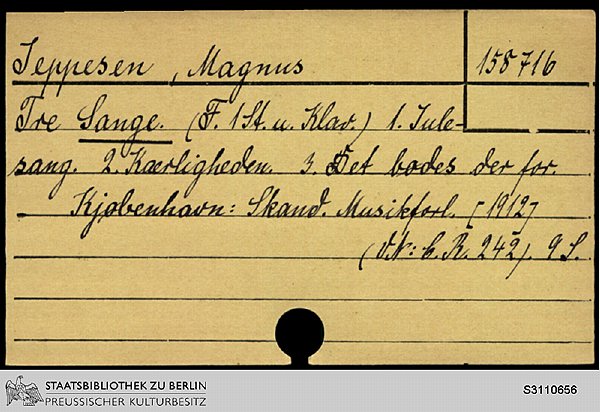 Jeppesen, Magnus
158716
Tre Sange. (F. 1 St. u. Klav.) 1. Jule-
sang. 2. Kærligheden. 3. Det bødes der for.
Kjøbenhavn: Skand. Musikforl. [1912]
(VN: C. R. 242). 9 S.
STAATSBIBLIOTHEK ZU BERLIN
PREUSSISCHER KULTURBESITZ
S3110656